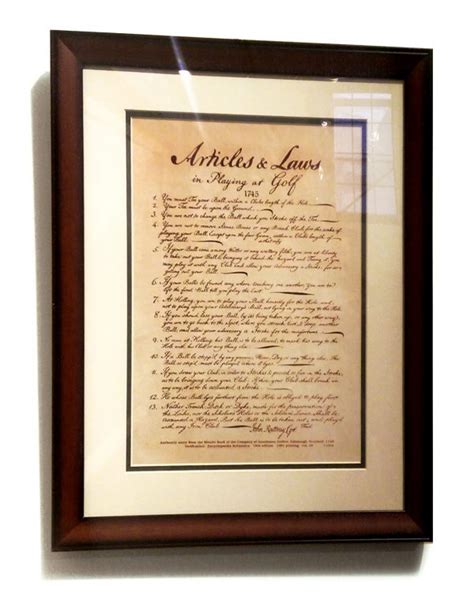 Articles & Laws
in Playing at Golf
1745
1. You must Tee your Ball, within a Clubs length of the Hole.
2. Your Tee must be upon the Ground.
3. You are not to change the Ball which you Stroke off the Tee.
4. You are not to remove Stones Bones or any Break Club for the sake of
playing your Ball, Except upon the fair Green, within a Clubs length of
your Ball.
5. If your Ball come among Water or any watery filth, you are at liberty
to take out your Ball & bringing it behind the hazard and Teeing it, You
may play it with any Club and allow your Adversary a Stroke, for so
getting out your Ball.
6. If your Balls be found any where touching one another, You are to
lift the first Ball till you play the last.
7. At Holling, you are to play your Ball honestly for the Hole and
not to play upon your Adversary's Ball, not lying in your way to the Hole.
8. If you should lose your Ball, by its being taken up, or any other way,
you are to go back to the Spot, where you struck last & drop another
Ball, and allow your adversary a Stroke for the misfortune.
9. No man at Holling his Ball, is to be allowed, to mark his way to the
Hole with his Club or any thing else.
10. If a Ball be stopp'd by any person, Horse, Dog or any thing else, The
Ball so stop'd must be played where it lyes.
11. If you draw your Club, in order to Stroke & proceed so far in the Stroke,
as to be bringing down your Club; If then your Club shall break in
any way, it is to be accounted a Stroke.
12. He whose Ball lyes farthest from the Hole is obliged to play first.
13. Neither Trench, Ditch or Dyke, made for the preservation of
the Links, nor the Scholars Holes or the Soldiers Lines Shall be
accounted a Hazard, But the Ball is to be taken out and play'd
with any Iron Club.
John Rattray Cpt